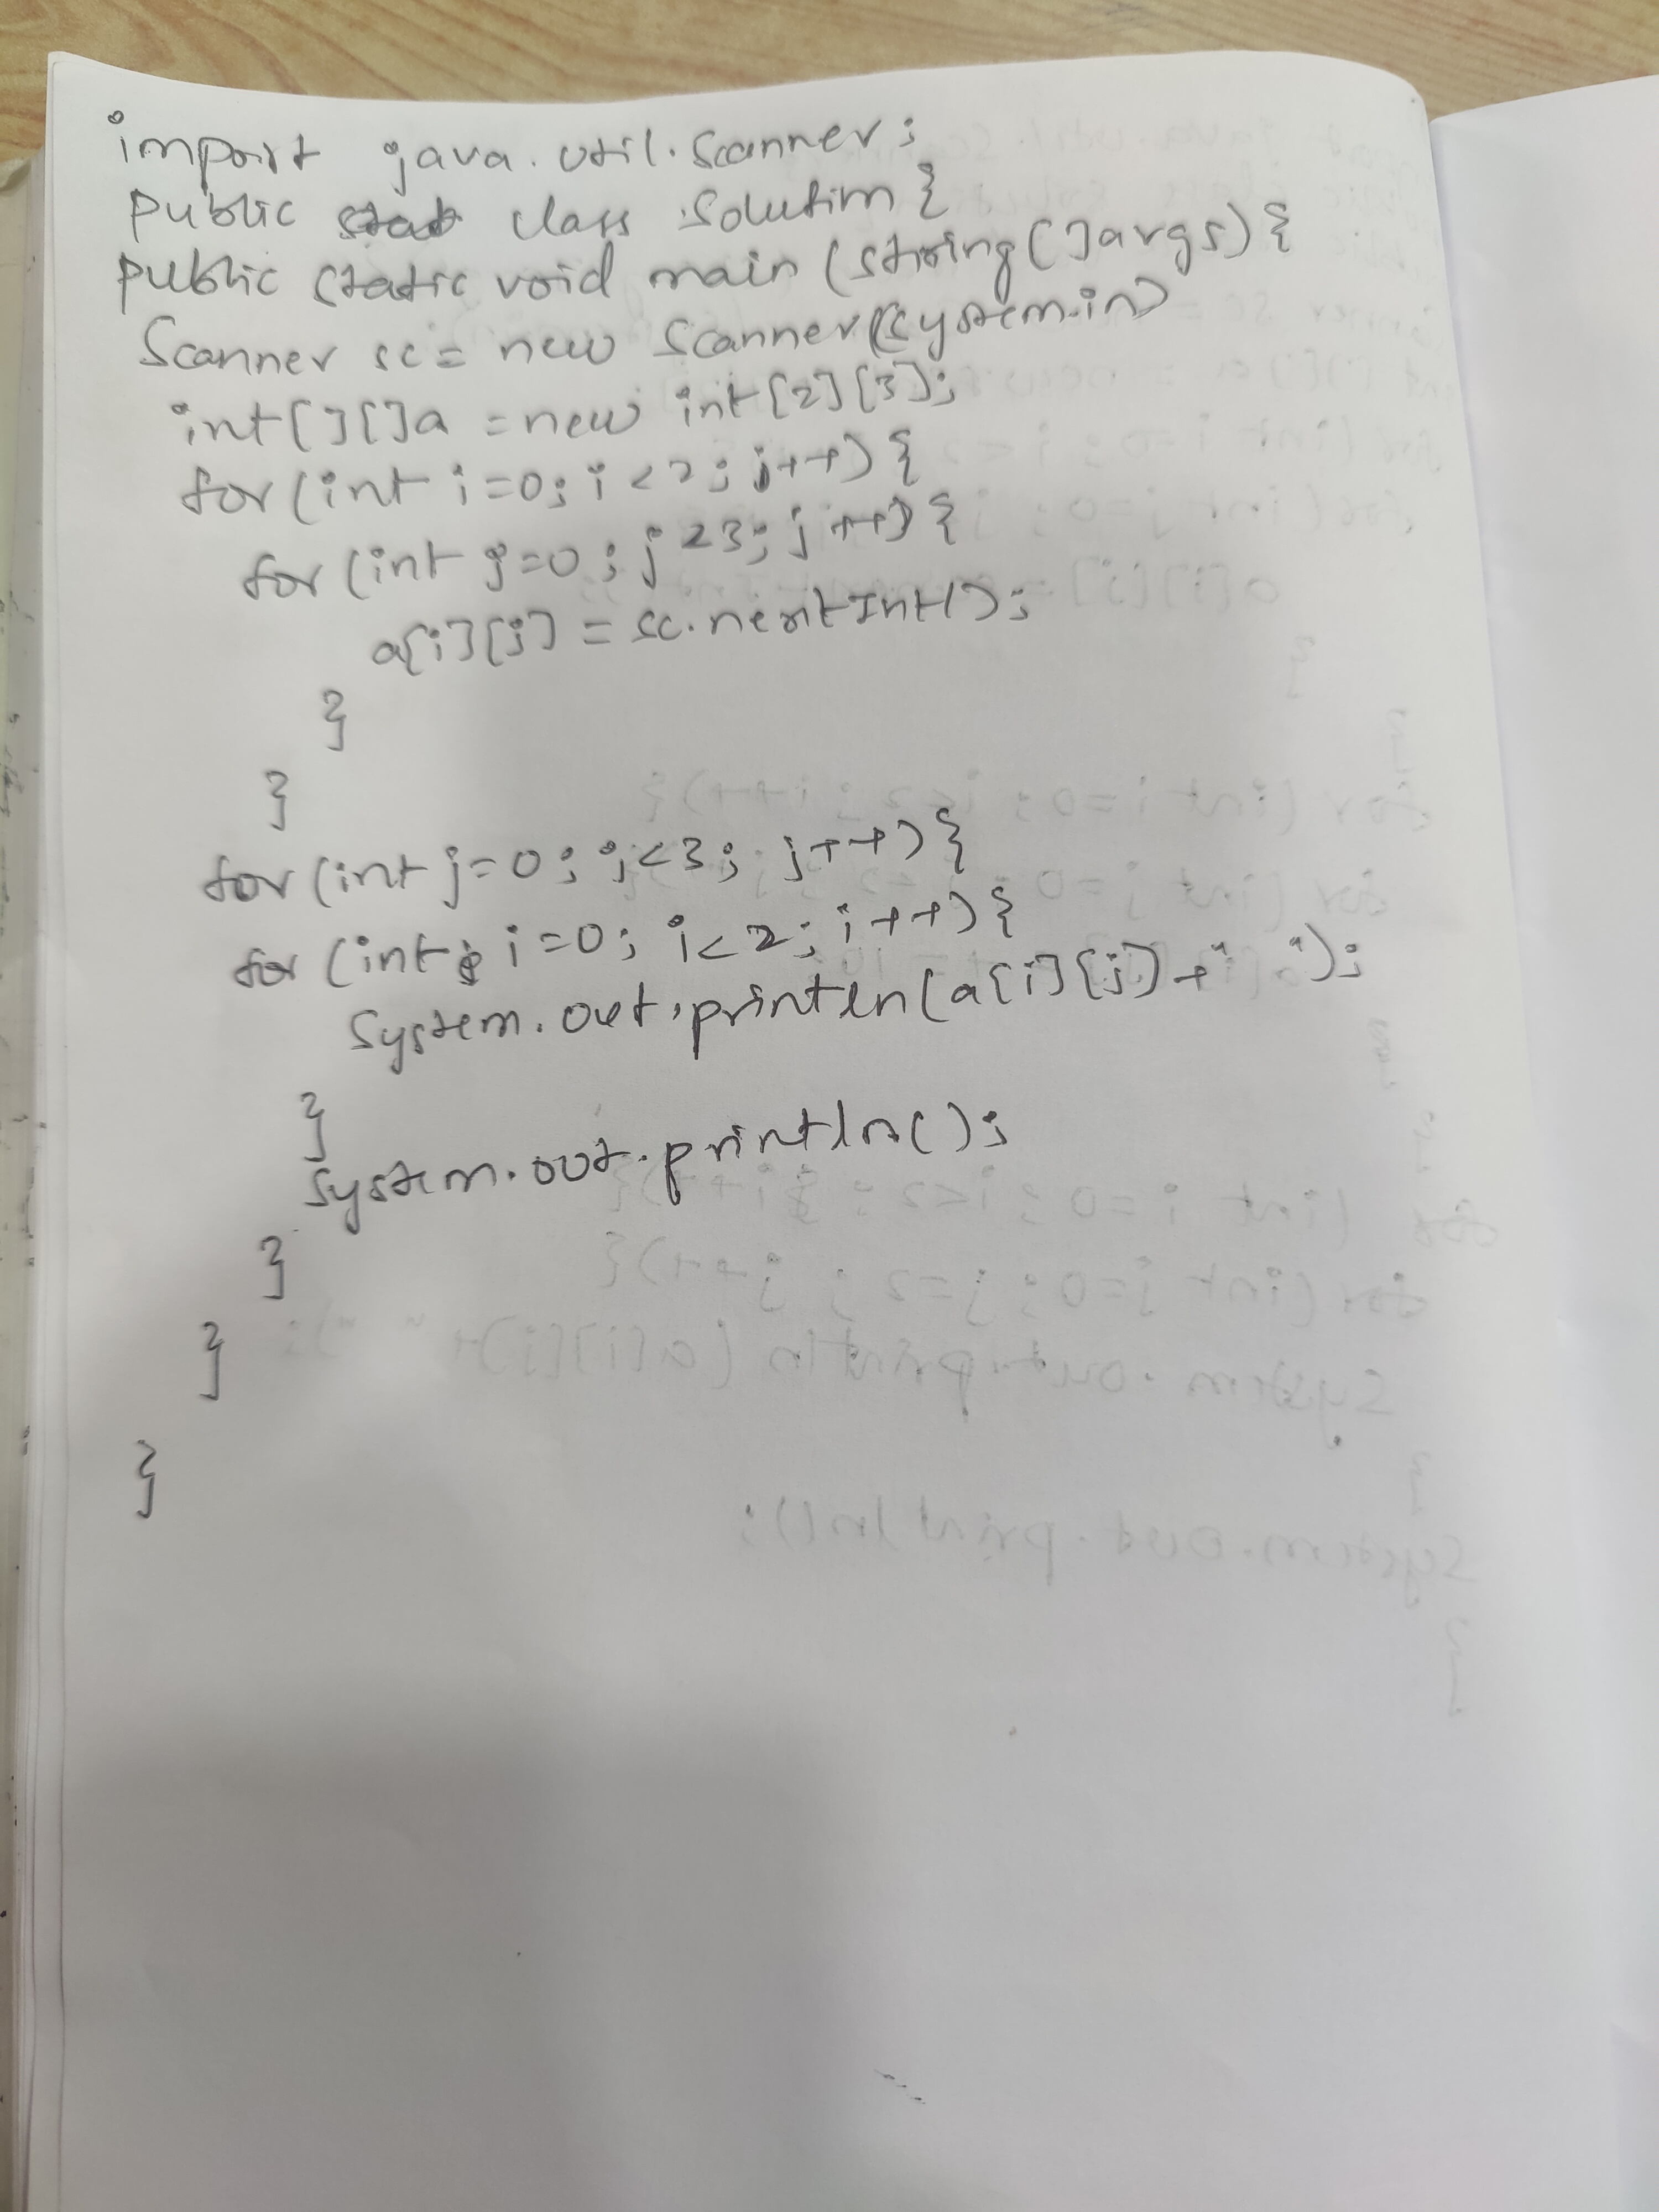 import java.util.Scanner;
public class Solution{
public static void main (string[]args){
Scanner sc = new Scanner(System.in)
int[][]a = new int[2][3];
for(int i=0; i<2; j++){
for(int j=0; j<3; j++){
a[i][j] = sc.nextInt();
}
}
for(int j=0; j<3; j++){
for(int i=0; i<2; i++){
System.out.println(a[i][j]+" ");
}
System.out.println();
}
}
}